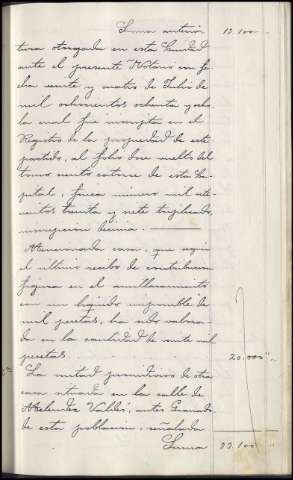 Suma anterior 13.100 "
tura otorgada en esta Ciudad
ante el presente Notario con fe-
cha veinte y cuatro de Julio de
mil ochocientos ochenta y ocho
la cual fue inscripta en el
Registro de la propiedad de este
partido, al folio doce vuelto del
tomo ciento catorce de esta Ca-
pital, finca número mil ocho-
cientos treinta y siete triplicado,
inscripcion decima.
Mencionada casa, que segun
el ultimo recibo de contribucion
figura en el amillaramiento
con un liquido imponible de
mil pesetas, ha sido valora-
da en la cantidad de veinte mil
pesetas. 20.000 "
La mitad proindiviso de otra
casa situada en la calle de
Melendez Valdés, antes Granado
de esta poblacion, señalada
Suma 33.100 "